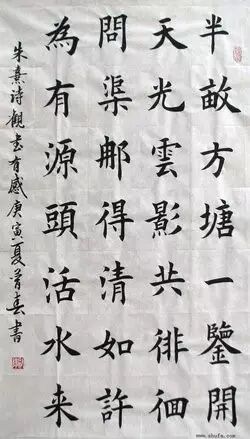 半畝方塘一鑒開
天光雲影共徘徊
問渠那得清如許
為有源頭活水来
朱熹诗觀书有感庚寅夏曾春書
www.shufa.com